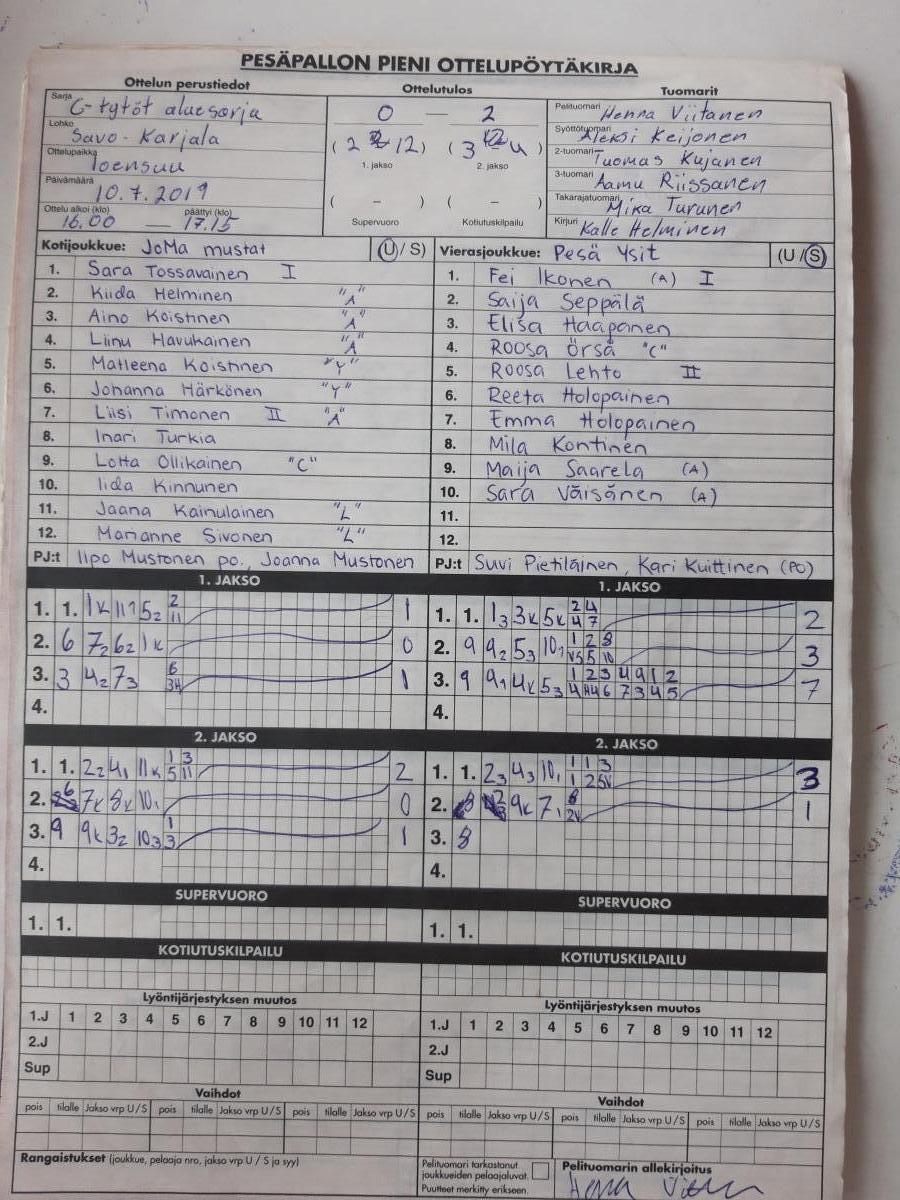 PESÄPALLON PIENI OTTELUPÖYTÄKIRJA
Ottelun perustiedot Ottelutulos Tuomarit
Sarja C-tytöt aluesarja
Lohko Savo-Karjala
Ottelupaikka Joensuu
Päivämäärä 10.7.2019
Ottelu alkoi (klo) 16.00 — päättyi (klo) 17.15
0 — 2
( 2 - 12) ( 3 - 4 )
1. jakso 2. jakso
( – ) ( – )
Supervuoro Kotiutuskilpailu
Pelituomari Henna Viitanen
Syöttötuomari Aleksi Keijonen
2-tuomari Tuomas Kujanen
3-tuomari Aamu Riissanen
Takarajatuomari Mika Turunen
Kirjuri Kalle Helminen
Kotijoukkue: JoMa mustat (U/S)
1. Sara Tossavainen I
2. Kiida Helminen "A"
3. Aino Koistinen "A"
4. Liinu Havukainen "A"
5. Matleena Koistinen "Y"
6. Johanna Härkönen "Y"
7. Liisi Timonen II "A"
8. Inari Turkia
9. Lotta Ollikainen "C"
10. Iida Kinnunen
11. Jaana Kainulainen "L"
12. Marianne Sivonen "L"
PJ:t Ilpo Mustonen po., Joanna Mustonen
Vierasjoukkue: Pesä Ysit (U/S)
1. Fei Ikonen (A) I
2. Saija Seppälä
3. Elisa Haapanen
4. Roosa Örså "C"
5. Roosa Lehto II
6. Reeta Holopainen
7. Emma Holopainen
8. Mila Kontinen
9. Maija Saarela (A)
10. Sara Väisänen (A)
11.
12.
PJ:t Suvi Pietiläinen, Kari Kuittinen (PO)
1. JAKSO
1. 1. 1K 11 52 2 11 1
2. 6 72 62 1K 0
3. 3 42 73 6 1
4.
1. JAKSO
1. 1. 13 3K 5K 2 4 4 7 2
2. 9 92 53 101 1 2 8 5 10 3
3. 9 91 4K 53 1 2 3 4 9 1 2 6 7 3 4 5 7
4.
2. JAKSO
1. 1. 22 41 11K 1 3 5 11 2
2. 7K 8K 101 0
3. 9 9K 32 103 1 3 1
4.
2. JAKSO
1. 1. 23 43 101 1 1 3 3
2. 9K 71 8 1
3. 8
4.
SUPERVUORO
1. 1.
SUPERVUORO
1. 1.
KOTIUTUSKILPAILU
KOTIUTUSKILPAILU
Lyöntijärjestyksen muutos
1.J 1 2 3 4 5 6 7 8 9 10 11 12
2.J
Sup
Lyöntijärjestyksen muutos
1.J 1 2 3 4 5 6 7 8 9 10 11 12
2.J
Sup
Vaihdot
pois tilalle Jakso vrp U/S pois tilalle Jakso vrp U/S pois tilalle Jakso vrp U/S
Vaihdot
pois tilalle Jakso vrp U/S pois tilalle Jakso vrp U/S pois tilalle Jakso vrp U/S
Rangaistukset (joukkue, pelaaja nro, jakso vrp U / S ja syy)
Pelituomari tarkastanut
joukkueiden pelaajaluvat.
Puutteet merkitty erikseen.
Pelituomarin allekirjoitus